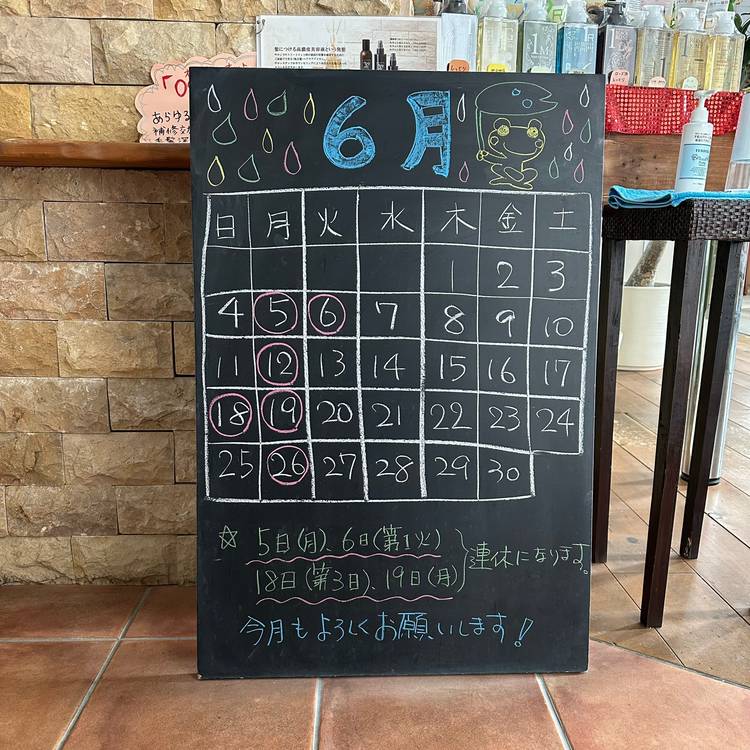 髪につける高濃度美容液という発想
あらゆる
補修
6月
日 月 火 水 木 金 土
1 2 3
4 5 6 7 8 9 10
11 12 13 14 15 16 17
18 19 20 21 22 23 24
25 26 27 28 29 30
☆ 5日(月)、6日(第1火)
18日(第3日)、19日(月)
連休になります。
今月もよろしくお願いします!